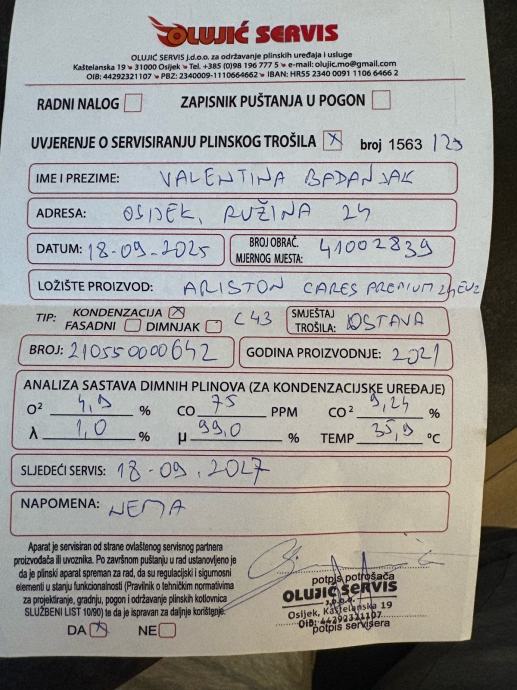 OLUJIĆ SERVIS
OLUJIĆ SERVIS j.d.o.o. za održavanje plinskih uređaja i usluge
Kaštelanska 19 31000 Osijek Tel. +385 (0)98 196 777 5 e-mail: olujic.mo@gmail.com
OIB: 44292321107 PBZ: 2340009-1110664662 IBAN: HR55 2340 0091 1106 6466 2
RADNI NALOG ZAPISNIK PUŠTANJA U POGON
UVJERENJE O SERVISIRANJU PLINSKOG TROŠILA X broj 1563 /25
IME I PREZIME: VALENTINA BADANJAK
ADRESA: OSIJEK, RUŽINA 24
DATUM: 18-09-2025 BROJ OBRAČ. MJERNOG MJESTA: 41002839
LOŽIŠTE PROIZVOD: ARISTON CARES PREMIUM 24 EU2
TIP: KONDENZACIJA X C43 SMJEŠTAJ TROŠILA: OSTAVA
FASADNI DIMNJAK
BROJ: 210550000642 GODINA PROIZVODNJE: 2021
ANALIZA SASTAVA DIMNIH PLINOVA (ZA KONDENZACIJSKE UREĐAJE)
O² 4,9 % CO 75 PPM CO² 9,24 %
λ 1,0 % µ 99,0 % TEMP 35,9 °C
SLJEDEĆI SERVIS: 18-09.2027
NAPOMENA: NEMA
Aparat je servisiran od strane ovlaštenog servisnog partnera
proizvođača ili uvoznika. Po završnom puštanju u rad ustanovljeno je
da je plinski aparat spreman za rad, da su regulacijski i sigurnosni
elementi u stanju funkcionalnosti (Pravilnik o tehničkim normativima
za projektiranje, gradnju, pogon i održavanje plinskih kotlovnica
SLUŽBENI LIST 10/90) te da je ispravan za daljnje korištenje.
DA X NE
potpis potrošača
OLUJIĆ SERVIS
j.d.o.o.
Osijek, Kaštelanska 19
OIB: 44292321107
potpis servisera